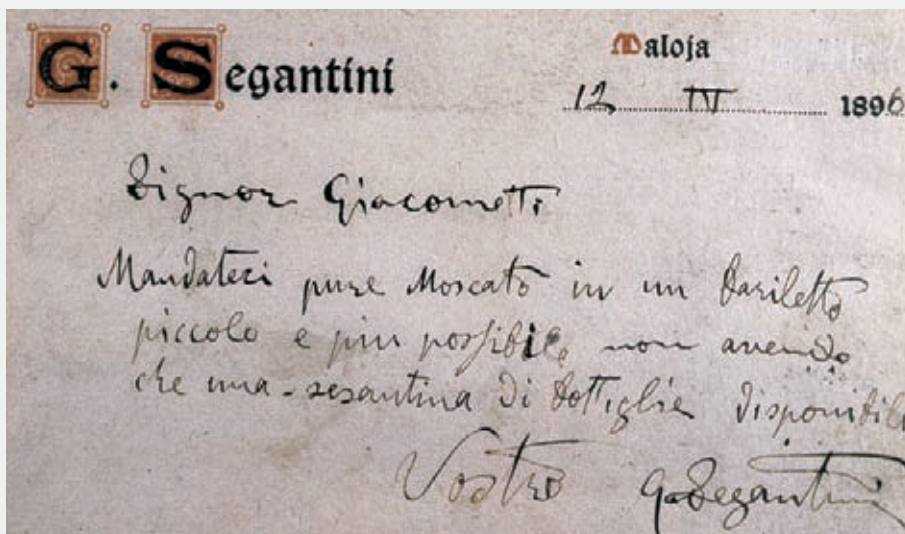 G. Segantini
Maloja
12 IV 1896
Signor Giacometti
Mandateci pure Moscato in un bariletto
piccolo e piu possibile, non avendo
che una-sesantina di bottiglie disponibili
Vostro G. Segantini